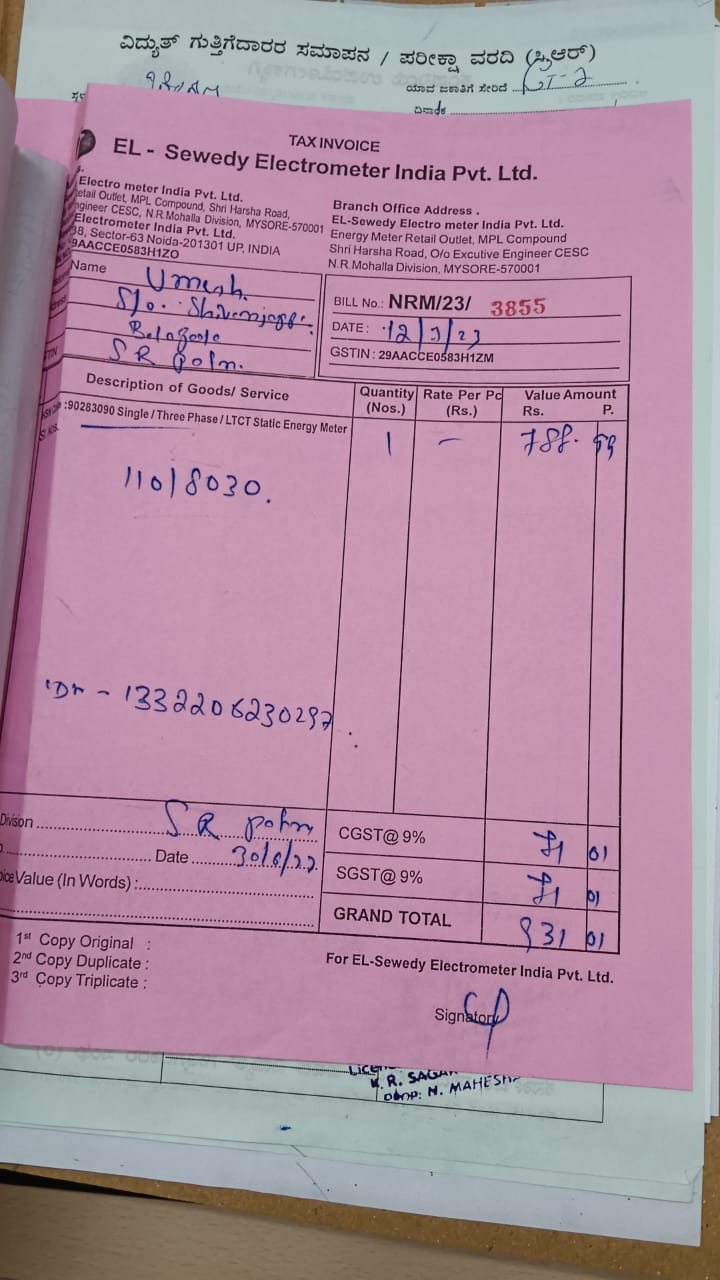 ವಿದ್ಯುತ್ ಗುತ್ತಿಗೆದಾರರ ಸಮಾಪನ / ಪರೀಕ್ಷಾ ವರದಿ (ಸಿಆರ್)
ಯಾವ ಜಕಾತಿಗೆ ಸೇರಿದೆ
ದಿನಾಂಕ
TAX INVOICE
EL - Sewedy Electrometer India Pvt. Ltd.
Electro meter India Pvt. Ltd.
etail Outlet, MPL Compound, Shri Harsha Road,
ngineer CESC, N.R.Mohalla Division, MYSORE-570001
Electrometer India Pvt. Ltd.
38, Sector-63 Noida-201301 UP, INDIA
9AACCE0583H1ZO
Branch Office Address .
EL-Sewedy Electro meter India Pvt. Ltd.
Energy Meter Retail Outlet, MPL Compound
Shri Harsha Road, O/o Excutive Engineer CESC
N.R.Mohalla Division, MYSORE-570001
Name Umesh.
S/o.
S R
BILL No.: NRM/23/ 3855
DATE :
GSTIN : 29AACCE0583H1ZM
Description of Goods/ Service Quantity (Nos.) Rate Per Pc (Rs.) Value Amount Rs. P.
:90283090 Single / Three Phase / LTCT Static Energy Meter 1 –
11018030.
- 1332206230297
Division S R
Date
Value (In Words) :
CGST@ 9% 71 01
SGST@ 9% 71 01
GRAND TOTAL 931 01
1st Copy Original :
2nd Copy Duplicate :
3rd Copy Triplicate :
For EL-Sewedy Electrometer India Pvt. Ltd.
Signatory
K. R. SAGAR
N. MAHESH